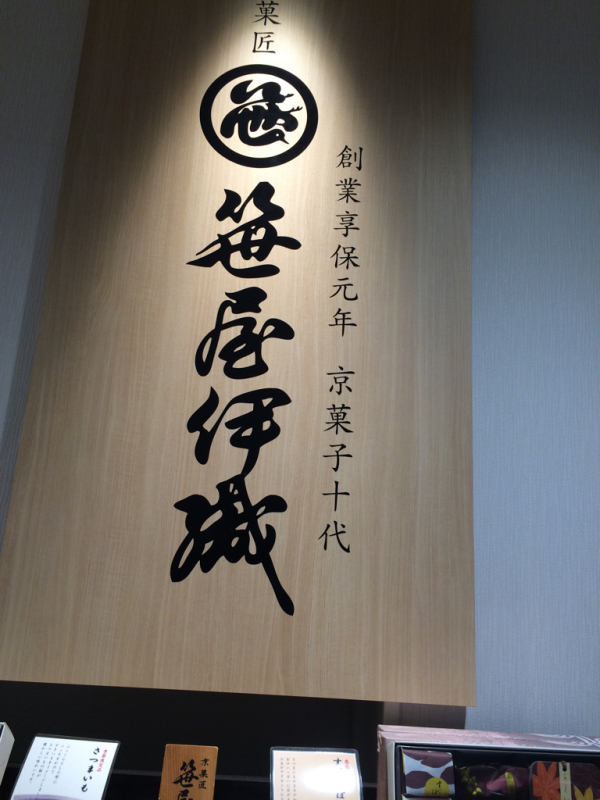 菓匠
笹
笹屋伊織
創業享保元年 京菓子十代
さつまいも
京菓匠
笹屋